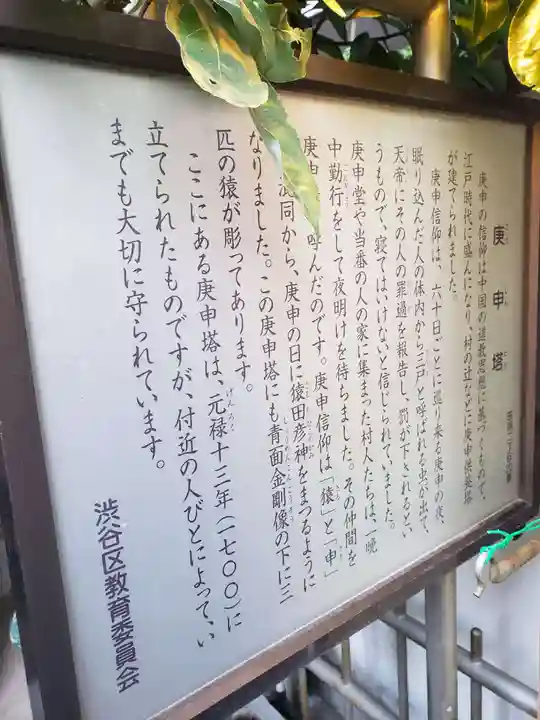 庚申塔
庚申の信仰は中国の道教思想に基づくもので、
江戸時代に盛んになり、村の辻などに庚申供養塔
が建てられました。
庚申信仰は、六十日ごとに巡り来る庚申の夜、
眠り込んだ人の体内から三尸と呼ばれる虫が出て、
天帝にその人の罪過を報告し、罰が下されるとい
うもので、寝てはいけないと信じられていました。
庚申堂や当番の人の家に集まった村人たちは、一晩
中勤行をして夜明けを待ちました。その仲間を
庚申 呼んだのです。庚申信仰は「猿」と「申」
混同から、庚申の日に猿田彦神をまつるように
なりました。この庚申塔にも青面金剛像の下に三
匹の猿が彫ってあります。
ここにある庚申塔は、元禄十三年(一七〇〇)に
立てられたものですが、付近の人びとによって、い
までも大切に守られています。
渋谷区教育委員会